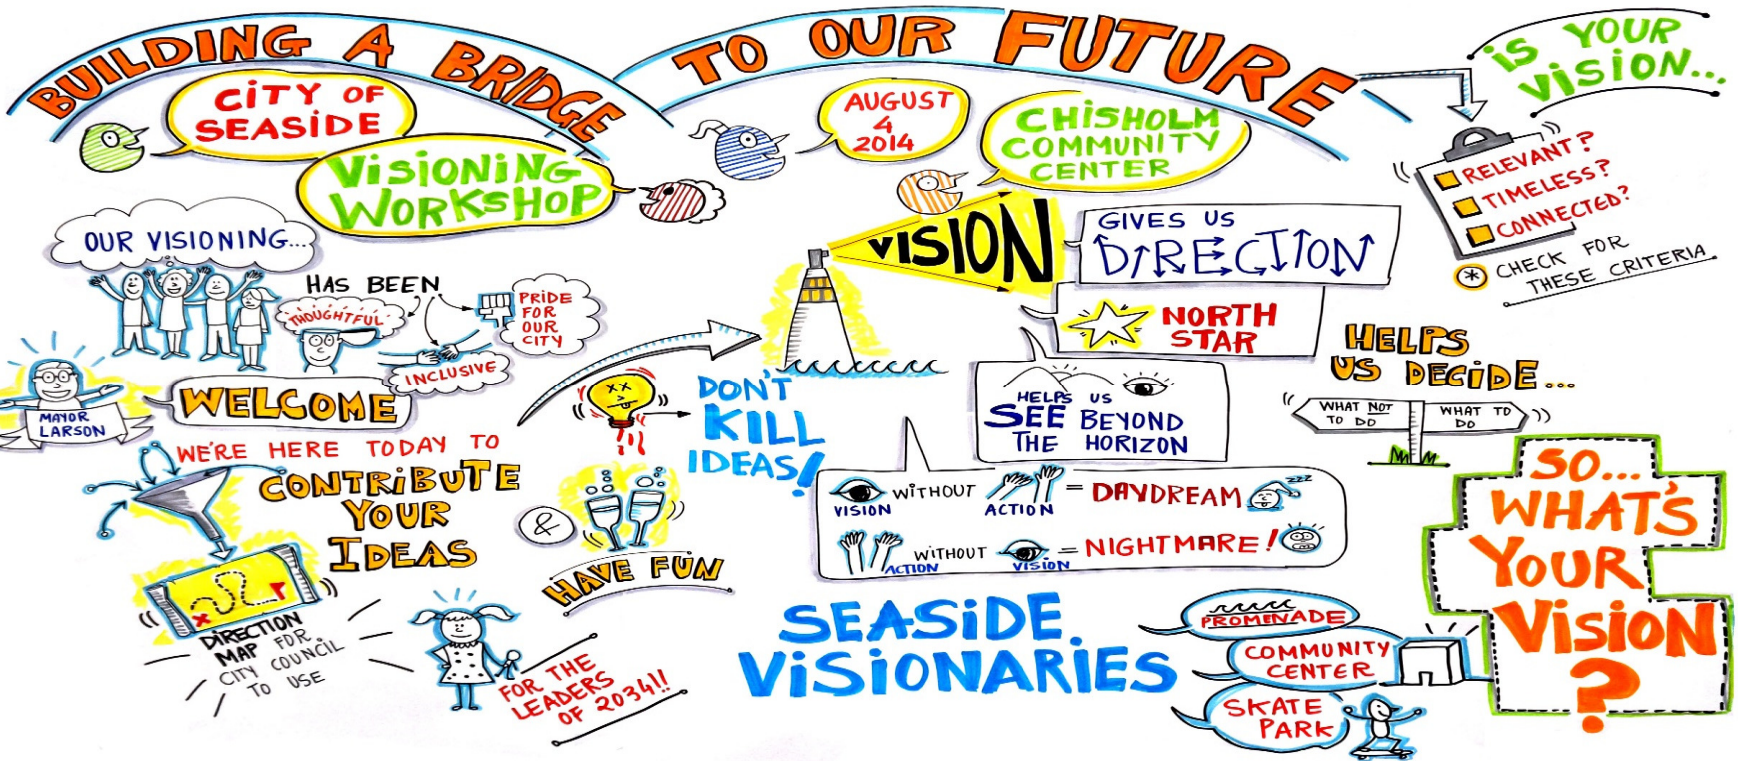 BUILDING A BRIDGE
TO OUR FUTURE
CITY OF
SEASIDE
VISIONING
WORKSHOP
AUGUST
4
2014
CHISHOLM
COMMUNITY
CENTER
IS YOUR
VISION...
RELEVANT?
TIMELESS?
CONNECTED?
* CHECK FOR
THESE CRITERIA
OUR VISIONING...
HAS BEEN
THOUGHTFUL
PRIDE
FOR
OUR
CITY
INCLUSIVE
MAYOR
LARSON
WELCOME
WE'RE HERE TODAY TO
CONTRIBUTE
YOUR
IDEAS
&
HAVE FUN
DIRECTION
MAP FOR
CITY COUNCIL
TO USE
FOR THE
LEADERS
OF 2034!!
DON'T
KILL
IDEAS!
VISION
GIVES US
DIRECTION
NORTH
STAR
HELPS US
SEE BEYOND
THE HORIZON
VISION WITHOUT ACTION = DAYDREAM zzz
ACTION WITHOUT VISION = NIGHTMARE!
HELPS
US DECIDE...
WHAT NOT
TO DO
WHAT TO
DO
SEASIDE
VISIONARIES
PROMENADE
COMMUNITY
CENTER
SKATE
PARK
SO...
WHAT'S
YOUR
VISION
?